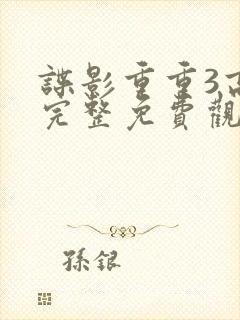 諜影重重3,高
完整免費觀
孫銀